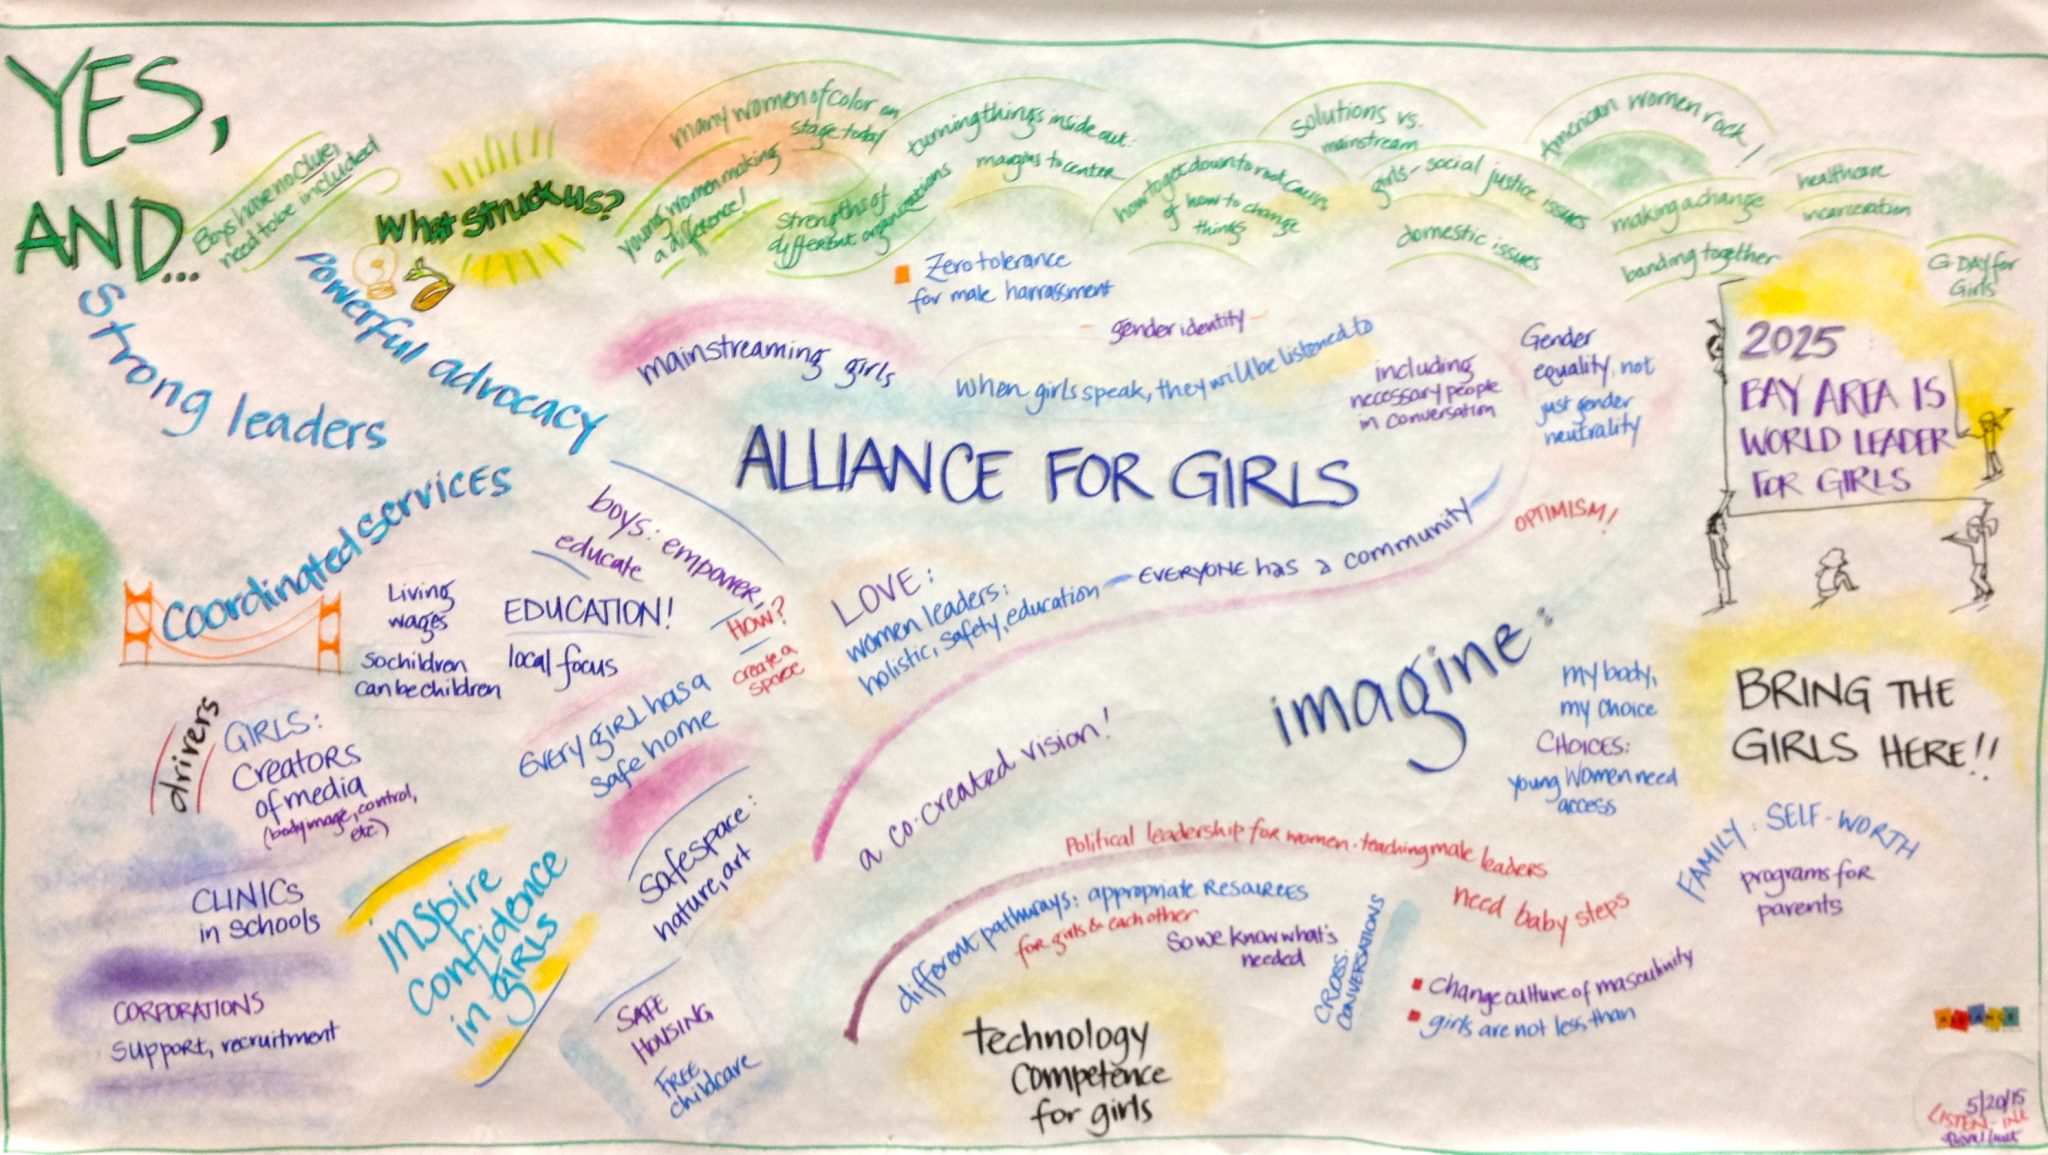 YES,
AND...
Boys have no clue,
need to be included
What struck us?
many women of color on
stage today
young women making
a difference!
Strengths of
different organizations
turning things inside out:
margins to center
how to get down to root causes
of how to change
things
solutions vs.
mainstream
girls - social justice issues
domestic issues
American women rock!
making a change
banding together
healthcare
incarceration
G DAY for
Girls
Strong leaders
Powerful advocacy
Coordinated services
mainstreaming girls
Zero tolerance
for male harrassment
gender identity
When girls speak, they will be listened to
including
necessary people
in conversation
Gender
equality, not
just gender
neutrality
2025
BAY AREA IS
WORLD LEADER
FOR GIRLS
ALLIANCE FOR GIRLS
OPTIMISM!
boys: empower,
educate
HOW?
create a
space
Living
wages
so children
can be children
EDUCATION!
local focus
LOVE:
women leaders:
holistic, safety, education - EVERYONE has a community
imagine:
my body,
my choice
CHOICES:
young women need
access
BRING THE
GIRLS HERE!!
FAMILY: SELF-WORTH
programs for
parents
drivers
GIRLS:
Creators
of media
(body image, control,
etc)
Every girl has a
safe home
Safespace:
nature, art
a co-created vision!
Political leadership for women - teaching male leaders
need baby steps
different pathways: appropriate RESOURCES
for girls & each other
So we know what's
needed
CROSS-
CONVERSATIONS
change culture of masculinity
girls are not less than
CLINICS
in schools
CORPORATIONS
support, recruitment
inspire
confidence
in girls
SAFE
HOUSING
FREE
childcare
technology
competence
for girls
ALLIANCE
5/20/15
LISTEN-INK